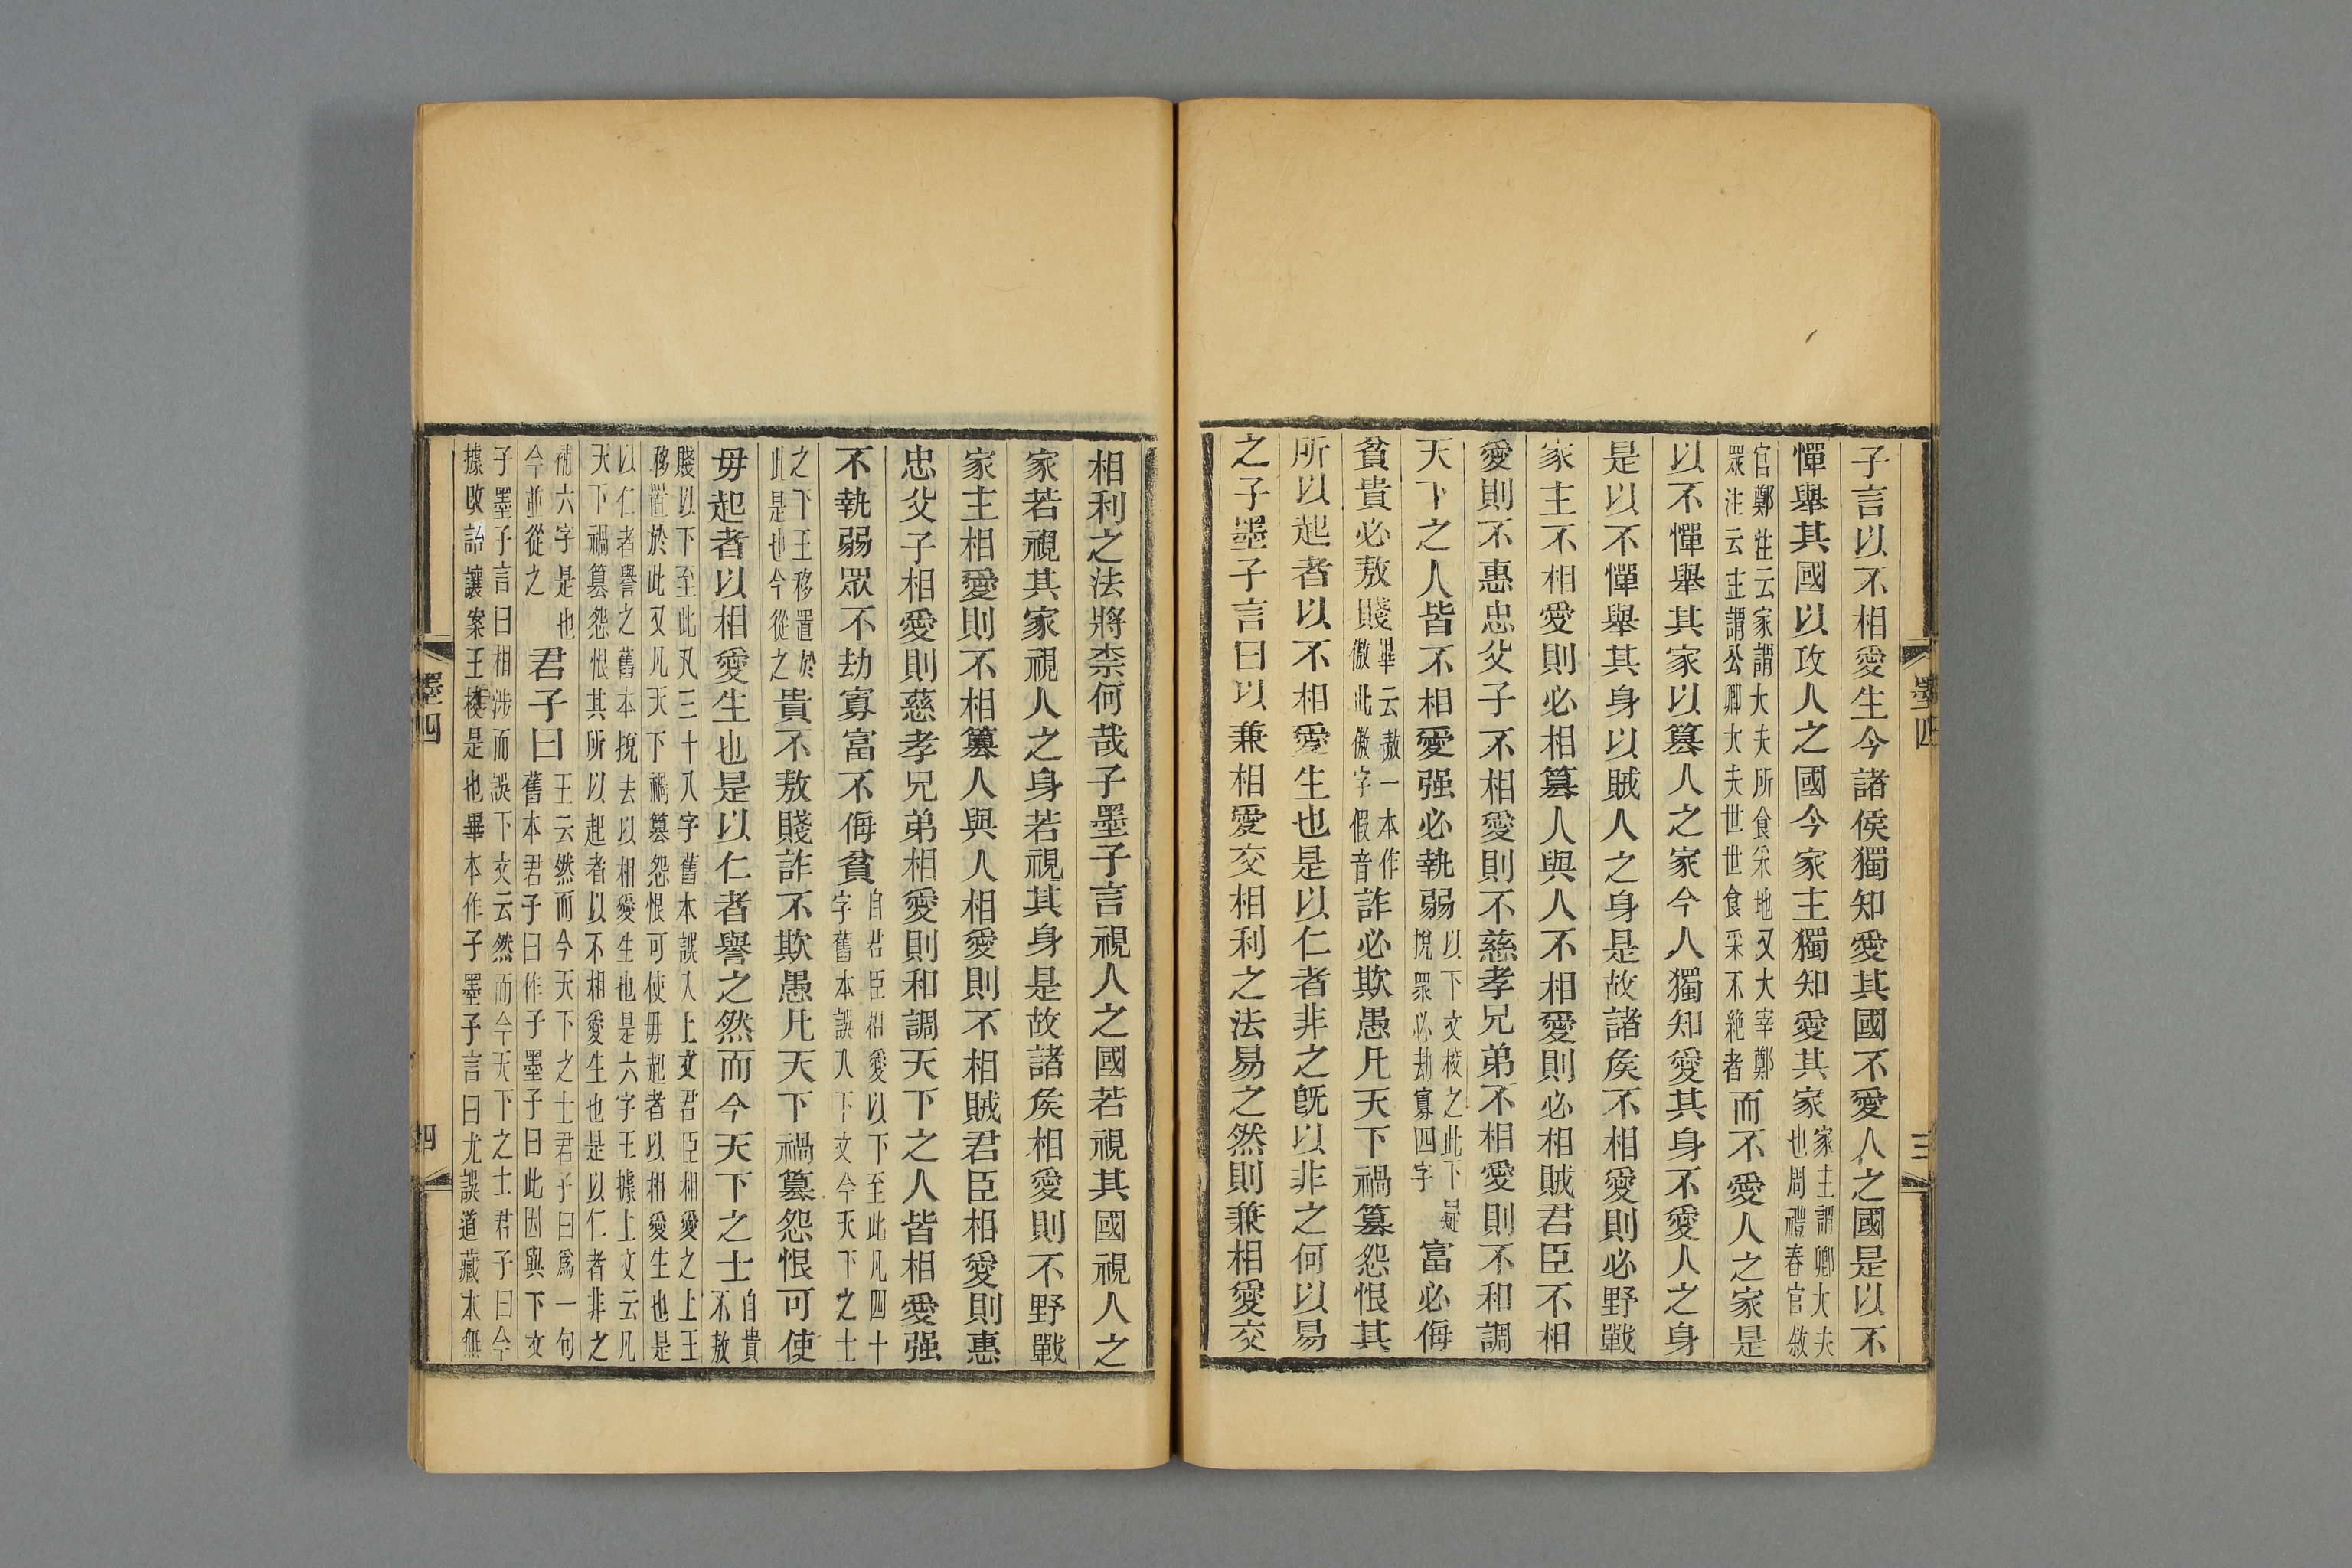 子言以不相愛生今諸侯獨知愛其國不愛人之國是以不
憚舉其國以攻人之國今家主獨知愛其家家主謂卿大夫也周禮春官敘
官鄭注云家謂大夫所食采地又大宰鄭眾注云主謂公卿大夫世世食采不絶者而不愛人之家是
以不憚舉其家以篡人之家今人獨知愛其身不愛人之身
是以不憚舉其身以賊人之身是故諸矦不相愛則必野戰
家主不相愛則必相篡人與人不相愛則必相賊君臣不相
愛則不惠忠父子不相愛則不慈孝兄弟不相愛則不和調
天下之人皆不相愛强必執弱以下文校之此下疑挩眾必劫寡四字富必侮
貧貴必敖賤畢云敖一本作傲此傲字假音詐必欺愚凡天下禍篡怨恨其
所以起者以不相愛生也是以仁者非之旣以非之何以易
之子墨子言曰以兼相愛交相利之法易之然則兼相愛交
墨四
三
相利之法將柰何哉子墨子言視人之國若視其國視人之
家若視其家視人之身若視其身是故諸矦相愛則不野戰
家主相愛則不相篡人與人相愛則不相賊君臣相愛則惠
忠父子相愛則慈孝兄弟相愛則和調天下之人皆相愛强
不執弱眾不劫寡富不侮貧自君臣相愛以下至此凡四十字舊本誤入下文今天下之士
之下王移置於此是也今從之貴不敖賤詐不欺愚凡天下禍篡怨恨可使
毋起者以相愛生也是以仁者譽之然而今天下之士自貴不敖
賤以下至此凡三十八字舊本誤入上文君臣相愛之上王移置於此又凡天下禍篡怨恨可使毋起者以相愛生也是
以仁者譽之舊本挩去以相愛生也是六字王據上文云凡天下禍篡怨恨其所以起者以不相愛生也是以仁者非之
補六字是也今並從之君子曰王云然而今天下之士君子曰爲一句舊本君子曰作子墨子曰此因與下文
子墨子言曰相涉而誤下文云然而今天下之士君子曰今據改詒讓案王校是也畢本作子墨子言曰尤誤道藏本無
墨四
四